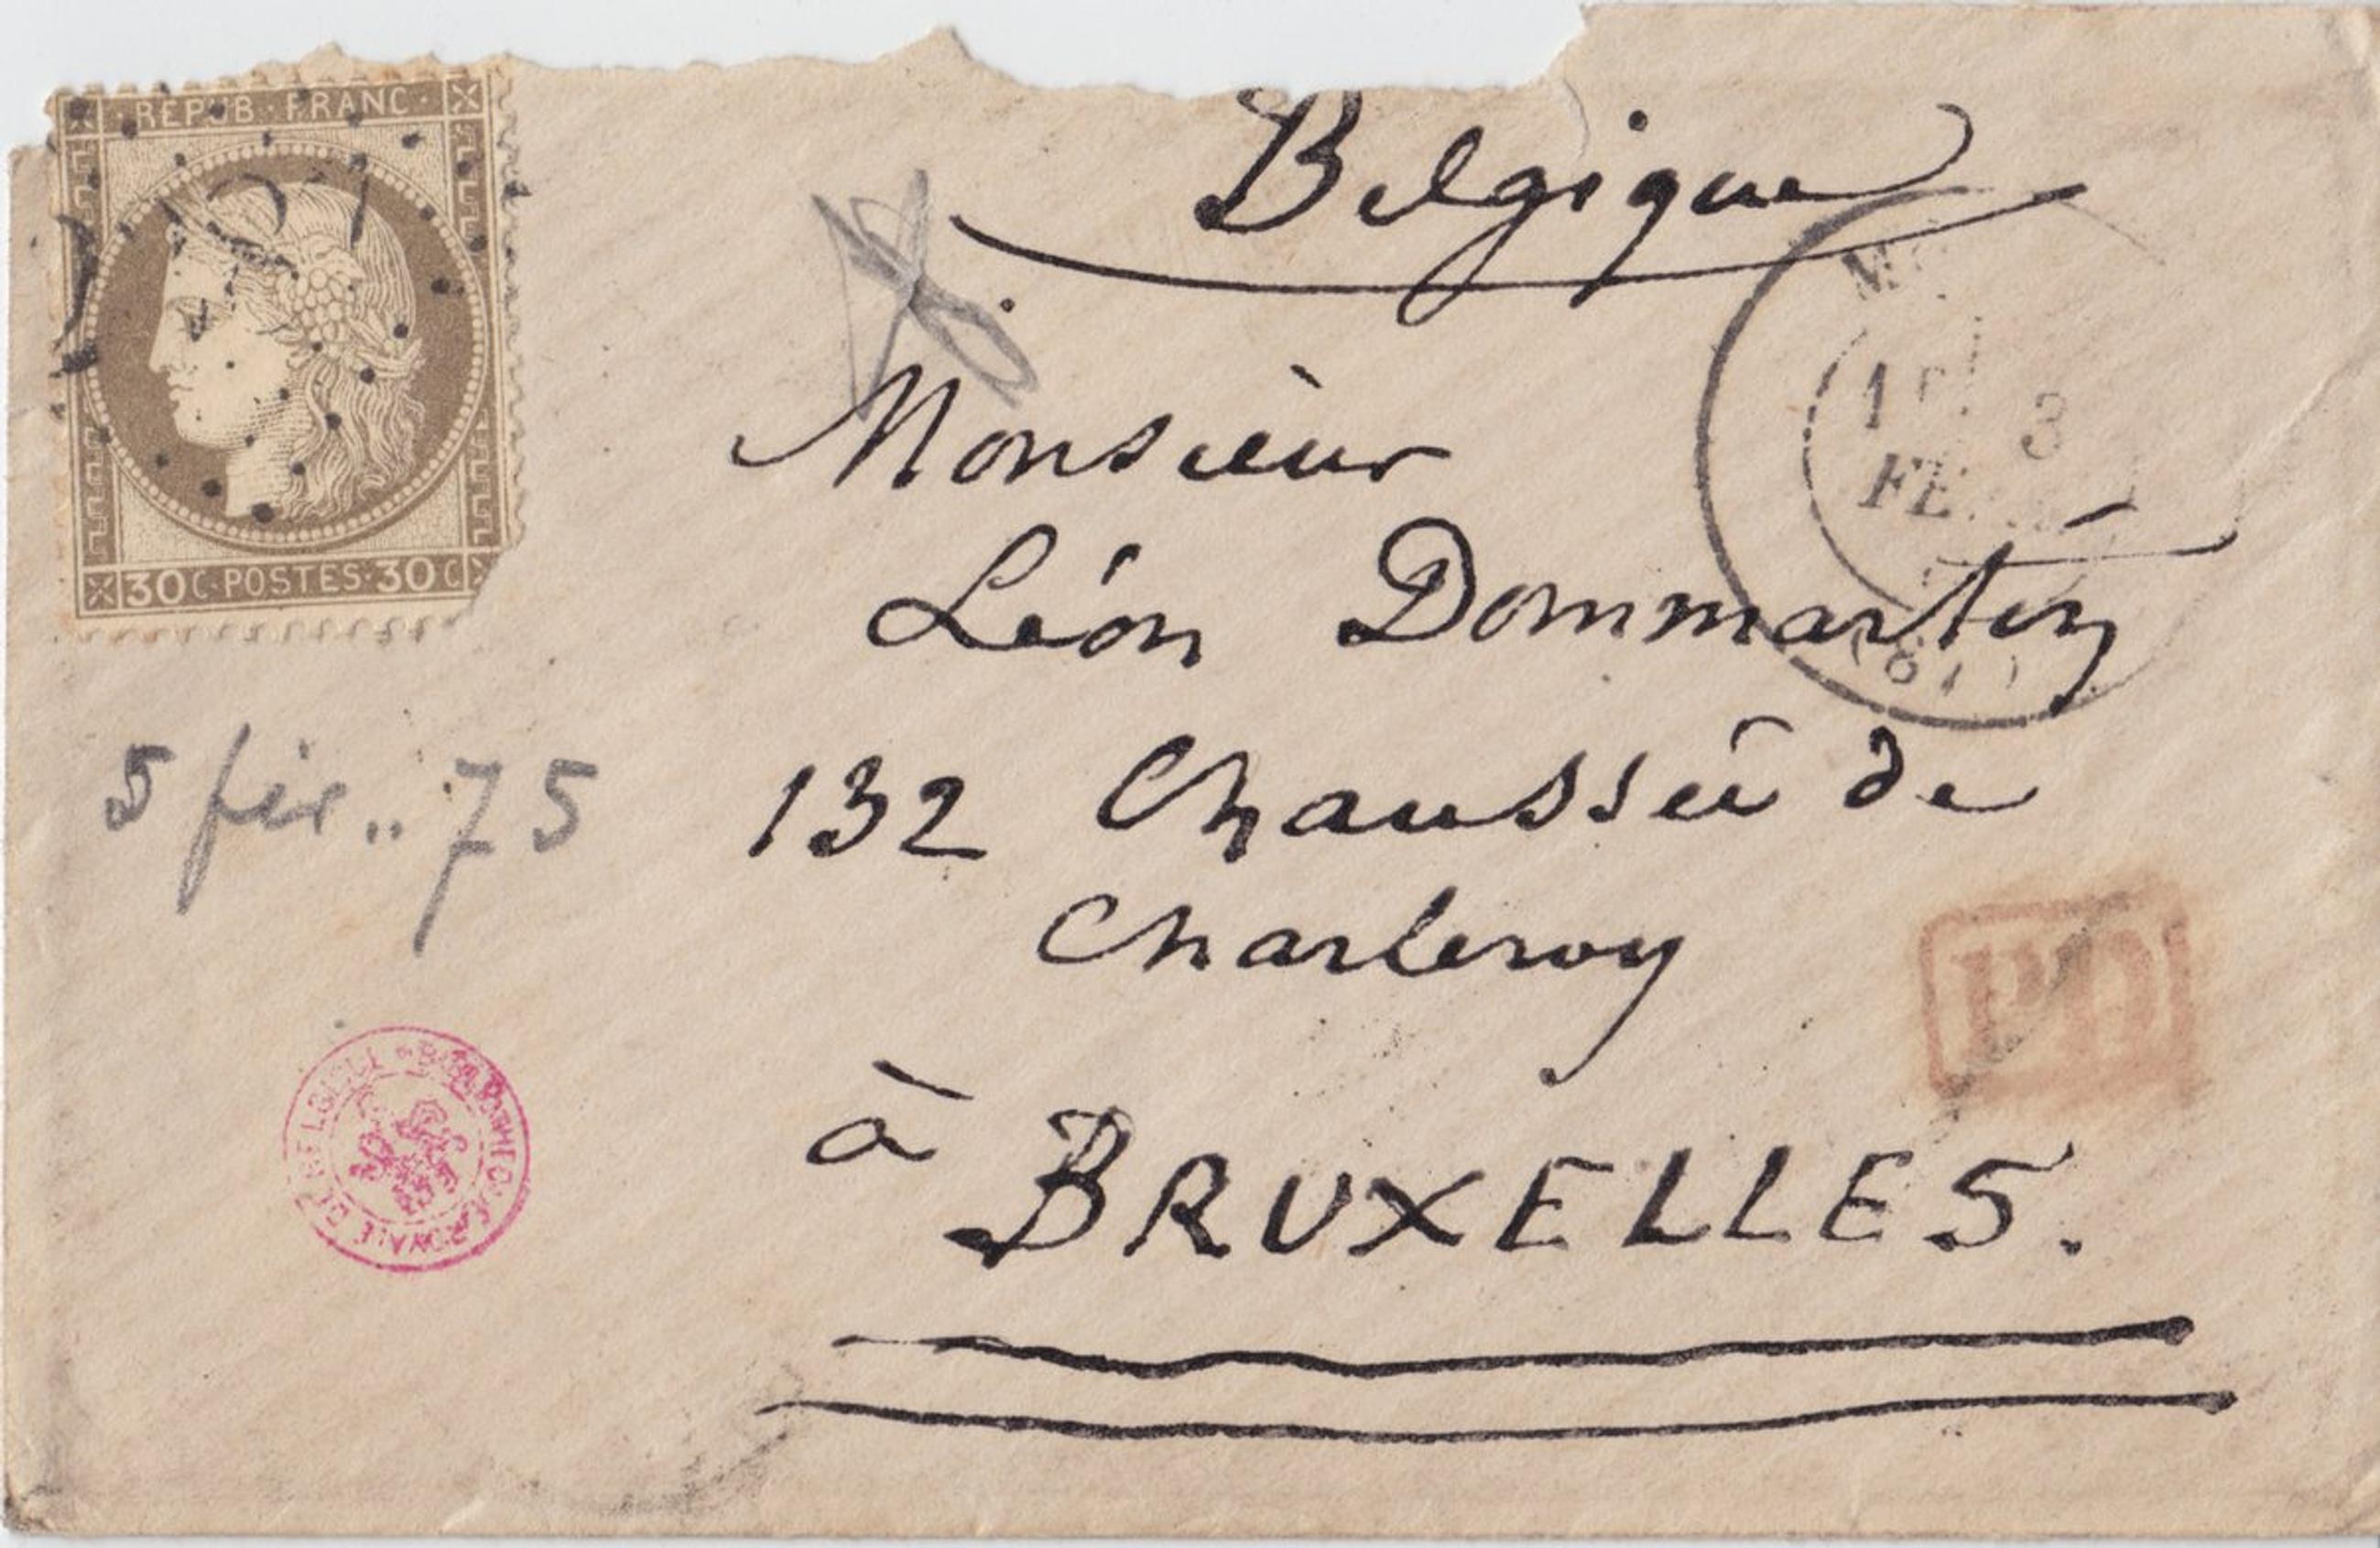 REPUB · FRANC ·
30C · POSTES · 30C
Belgique
Monsieur
Léon Dommartin
132 Chaussée de
Charleroy
à
BRUXELLES.
3
FE
(81)
5 fév.. 75
PD
BIBLIOTHECA REGIA BELGICA